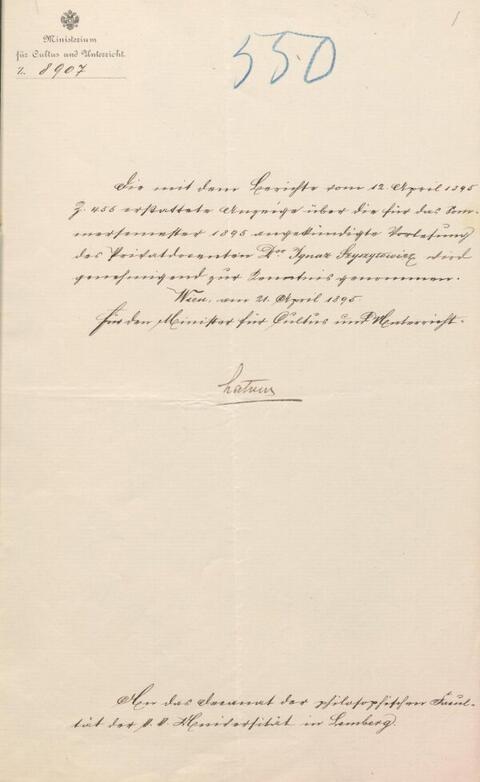 1
Ministerium
für Cultus und Unterricht.
Z. 8907
550
Die mit dem Berichte vom 12. April 1895
Z. 456 erstattete Anzeige über die für das Som-
mersemester 1895 angekündigte Vorlesung
des Privatdocenten Dor Ignaz Szyszylowicz wird
genehmigend zur Kenntnis genommen.
Wien, am 21. April 1895.
Für den Minister für Cultus und Unterricht.
An das Decanat der philosophischen Facul-
tät der k. k. Universität in Lemberg.